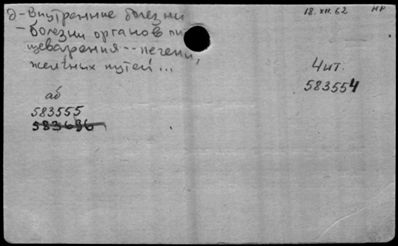 Д-Внутренние болезни
18.XII.62
НР
- болезни органов пи
щеварения -- печени,
желчных путей ...
Чит.
583554
аб
583555
583696